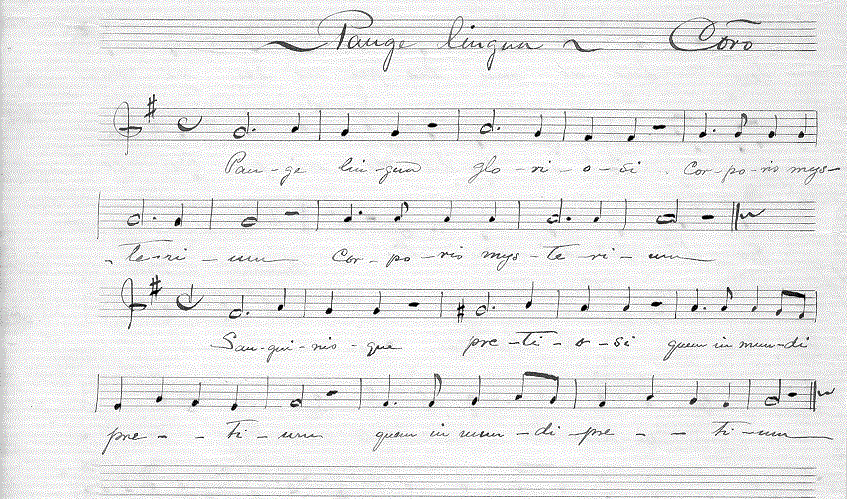 Pange lingua ~ Coro
Pan-ge lin-gua glo-ri-o-si. Cor-po-ris mys-
-te-ri-um Cor-po-ris mys-te-ri-um
San-gui-nis-que pre-ti-o-si quem in mun-di
pre-- ti-um quem in mun-di pre-- ti-um